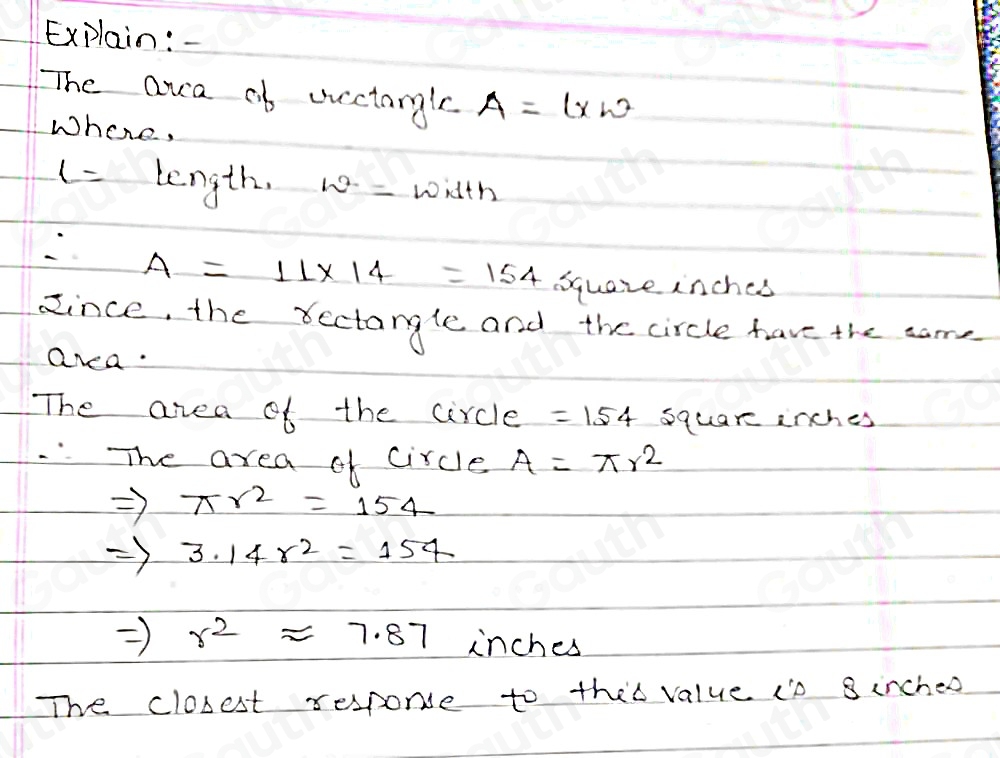 Explain:-
The area of rectangle A = l×w
Where,
l = length, w = width
∴ A = 11×14 = 154 square inches
Since, the rectangle and the circle have the same
area.
The area of the circle = 154 square inches
∴ The area of circle A = πr²
⇒ πr² = 154
⇒ 3.14r² = 154
⇒ r² ≈ 7.87 inches
The closest response to this value is 8 inches